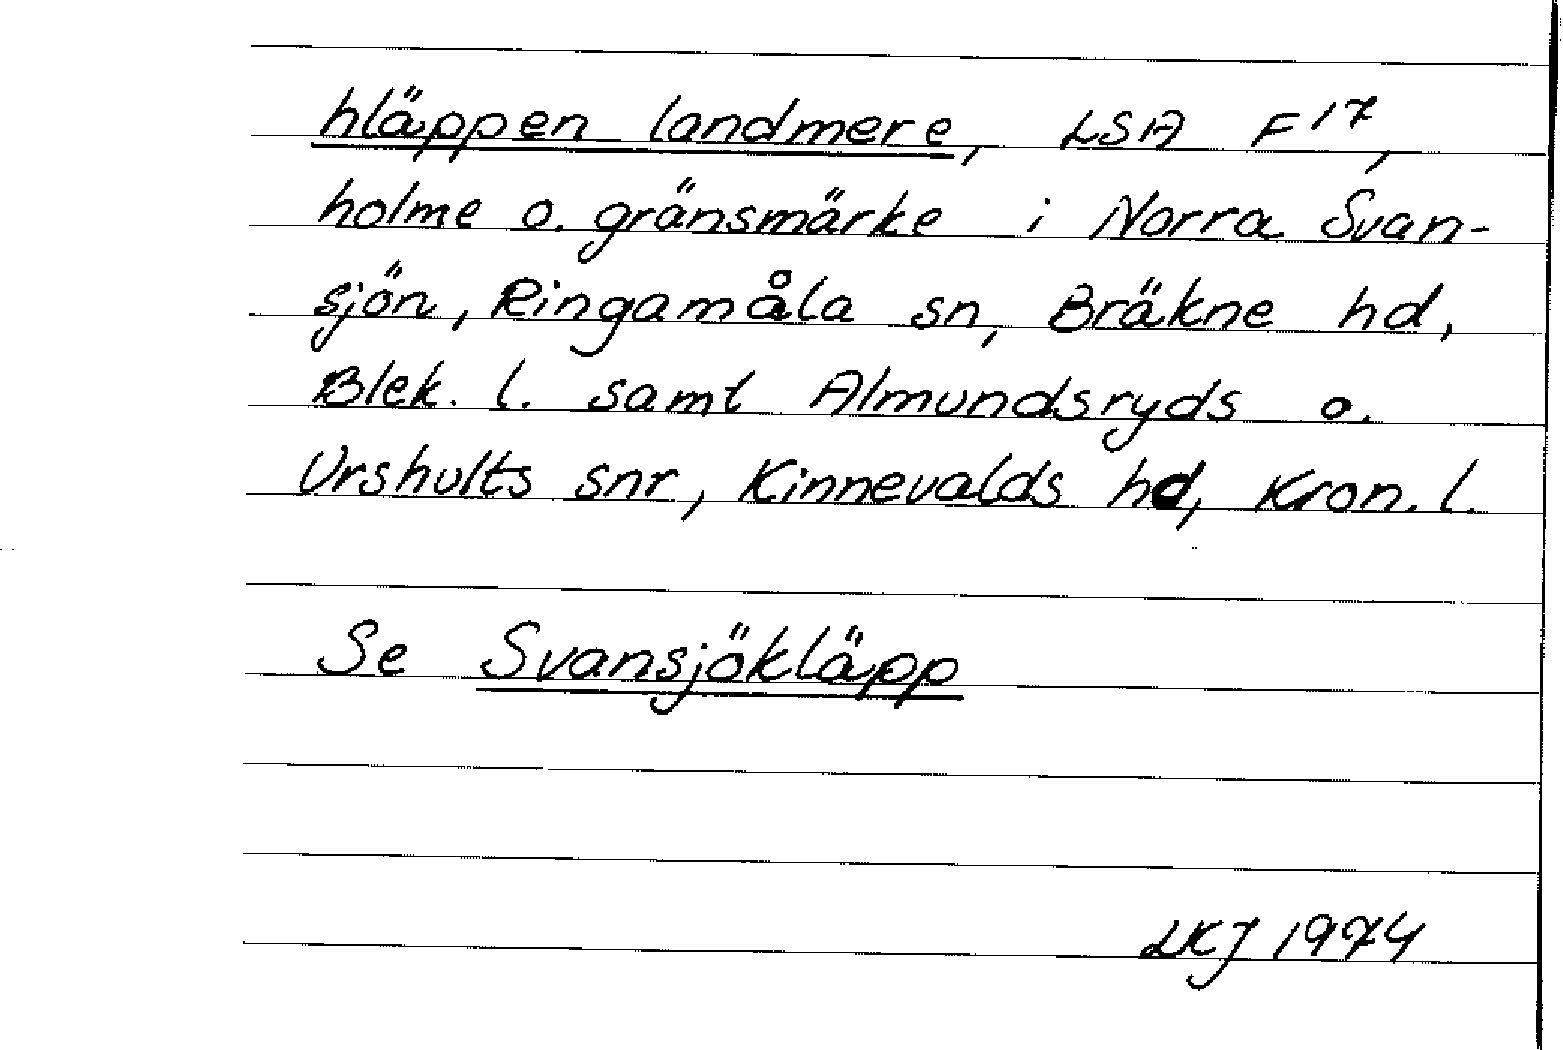 hläppen landmere, LSA F 17,
holme o. gränsmärke i Norra Svan-
sjön, Ringamåla sn, Bräkne hd,
Blek. l. samt Almundsryds o.
Urshults snr, Kinnevalds hd, Kron. l.
Se Svansjökläpp
LKJ 1974